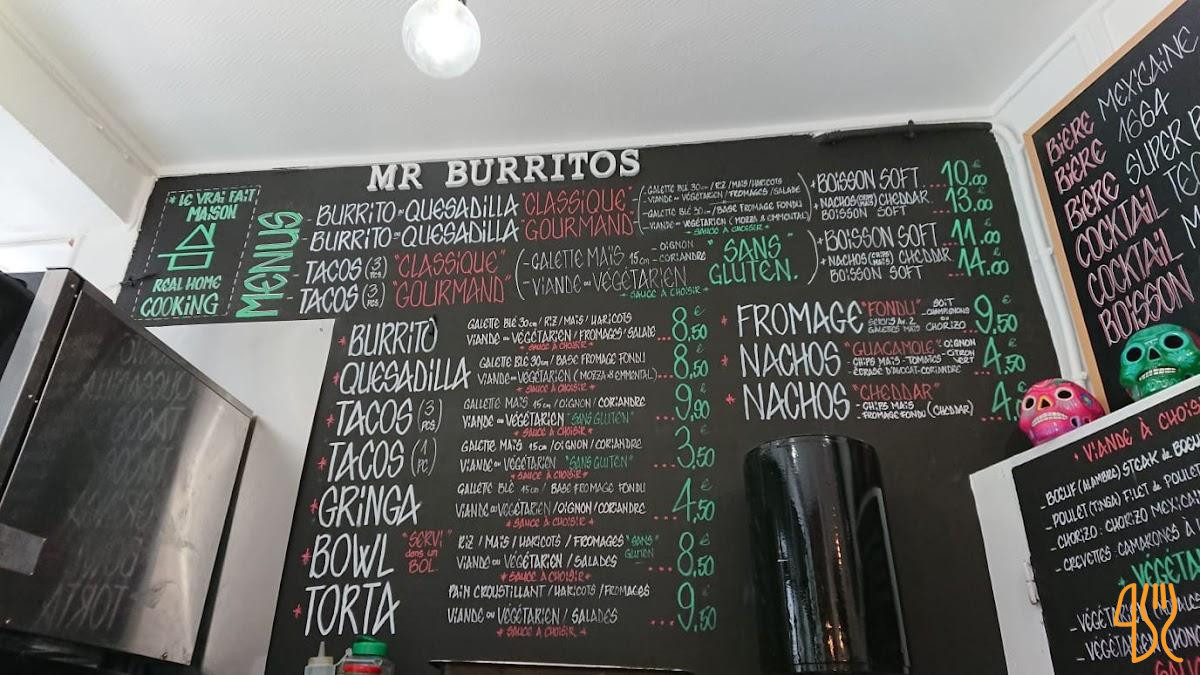 MR BURRITOS
* LE VRAI FAIT
MAISON
REAL HOME
COOKING
MENUS
- BURRITO OU QUESADILLA "CLASSIQUE"
- BURRITO OU QUESADILLA GOURMAND"
- GALETTE BLÉ 30cm / RIZ / MAIS / HARICOTS
- VIANDE OU VÉGÉTARIEN / FROMAGES / SALADE
- GALETTE BLÉ 30cm / BASE FROMAGE FONDU
- VIANDE OU VÉGÉTARIEN (MOZZA & EMMENTAL)
* SAUCE À CHOISIR *
+ BOISSON SOFT ...10.00€
+ NACHOS (CHIPS MAIS) CHEDDAR
BOISSON SOFT ...13.00
- TACOS (3 PCS) "CLASSIQUE"
- TACOS (3 PCS) "GOURMAND"
- GALETTE MAÏS 15cm - OIGNON - CORIANDRE
- VIANDE OU VÉGÉTARIEN
* SAUCE À CHOISIR *
"SANS
GLUTEN."
+ BOISSON SOFT ...11.00€
+ NACHOS (CHIPS MAIS) CHEDDAR
BOISSON SOFT ...14.00
* BURRITO GALETTE BLÉ 30cm / RIZ / MAIS / HARICOTS
VIANDE OU VÉGÉTARIEN / FROMAGES / SALADE ...8,50€
* SAUCE À CHOISIR *
* QUESADILLA GALETTE BLÉ 30cm / BASE FROMAGE FONDU
VIANDE OU VÉGÉTARIEN (MOZZA & EMMENTAL) ...8,50€
* SAUCE À CHOISIR *
* TACOS (3 PCS) GALLETTE MAÏS 15cm / OIGNON / CORIANDRE
VIANDE OU VÉGÉTARIEN "SANS GLUTEN" ...9,90€
* SAUCE À CHOISIR *
* TACOS (1 PC) GALETTE MAÏS 15cm / OIGNON / CORIANDRE
VIANDE OU VÉGÉTARIEN "SANS GLUTEN" ...3,50€
* SAUCE À CHOISIR *
* GRINGA GALETTE BLÉ 15cm / BASE FROMAGE FONDU
VIANDE OU VÉGÉTARIEN / OIGNON / CORIANDRE ...4,50€
* SAUCE À CHOISIR *
* BOWL "SERVI dans un BOL." RIZ / MAIS / HARICOTS / FROMAGES "SANS GLUTEN"
VIANDE OU VÉGÉTARIEN / SALADES ...8,50€
* SAUCE À CHOISIR *
* TORTA PAIN CROUSTILLANT / HARICOTS / FROMAGES
VIANDE OU VÉGÉTARIEN / SALADES ...9,50€
* SAUCE À CHOISIR *
* FROMAGE "FONDU" - SOIT CHAMPIGNONS
SERVIS AV. 2 GALETTES MAÏS OU CHORIZO ...9,50€
* NACHOS "GUACAMOLE" OIGNON
- CHIPS MAÏS - TOMATES - CITRON VERT
ÉCRASÉ D'AVOCAT - CORIANDRE ...4,50€
* NACHOS "CHEDDAR"
- CHIPS MAÏS
- FROMAGE FONDU (CHEDDAR) ...4,
BIÈRE MEXICAINE
BIÈRE 1664
BIÈRE SUPER
COCKTAIL
COCKTAIL
BOISSON
* VIANDE À
- BOEUF (ALAMBRE) STEAK de
- POULET (TINGA) FILET de POULET
- CHORIZO : CHORIZO
- CREVETTES CAMARONES À
*